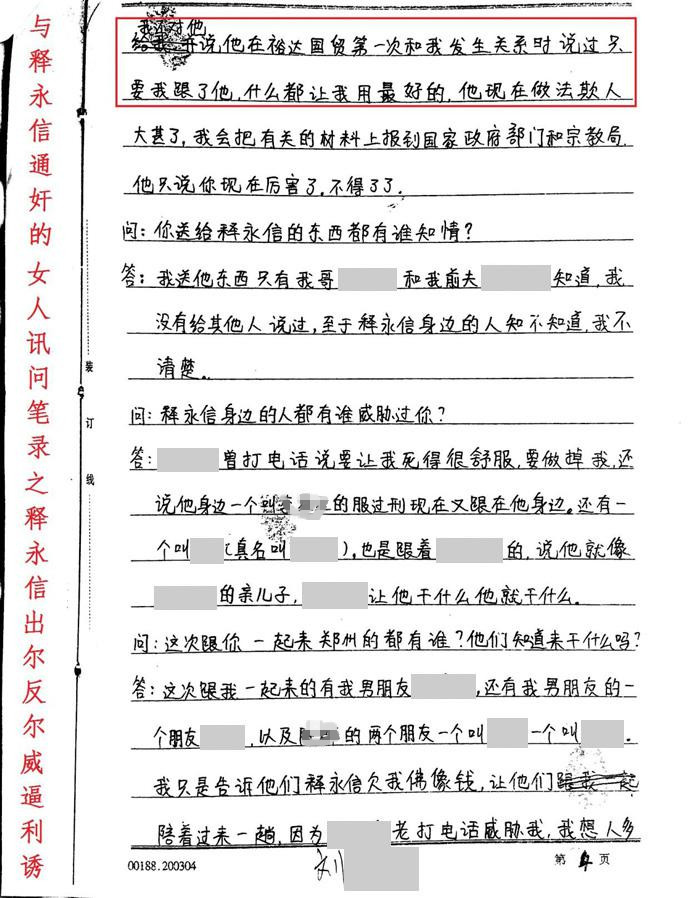 与释永信通奸的女人讯问笔录之释永信出尔反尔威逼利诱
我还对他
给我 并说他在裕达国贸第一次和我发生关系时说过只
要我跟了他,什么都让我用最好的,他现在做法欺人
大甚了,我会把有关的材料上报到国家政府部门和宗教局.
他只说你现在厉害了.不得了了.
问:你送给释永信的东西都有谁知情?
答:我送他东西只有我哥 和我前夫 知道,我
没有给其他人说过,至于释永信身边的人知不知道,我不
清楚。
问:释永信身边的人都有谁威胁过你?
答: 曾打电话说要让我死得很舒服,要做掉我,还
说他身边一个 的服过刑现在又跟在他身边。还有一
个叫 (真名叫 ),也是跟着 的,说他就像
的亲儿子, 让他干什么他就干什么。
问:这次跟你一起来郑州的都有谁?他们知道来干什么吗?
答:这次跟我一起来的有我男朋友 ,还有我男朋友的一
个朋友 ,以及 的两个朋友一个叫 一个叫 .
我只是告诉他们释永信欠我佛像钱,让他们跟我一起
陪着过来一趟,因为 老打电话威胁我,我想人多
装
订
线
00188.200304
刘
第 4 页